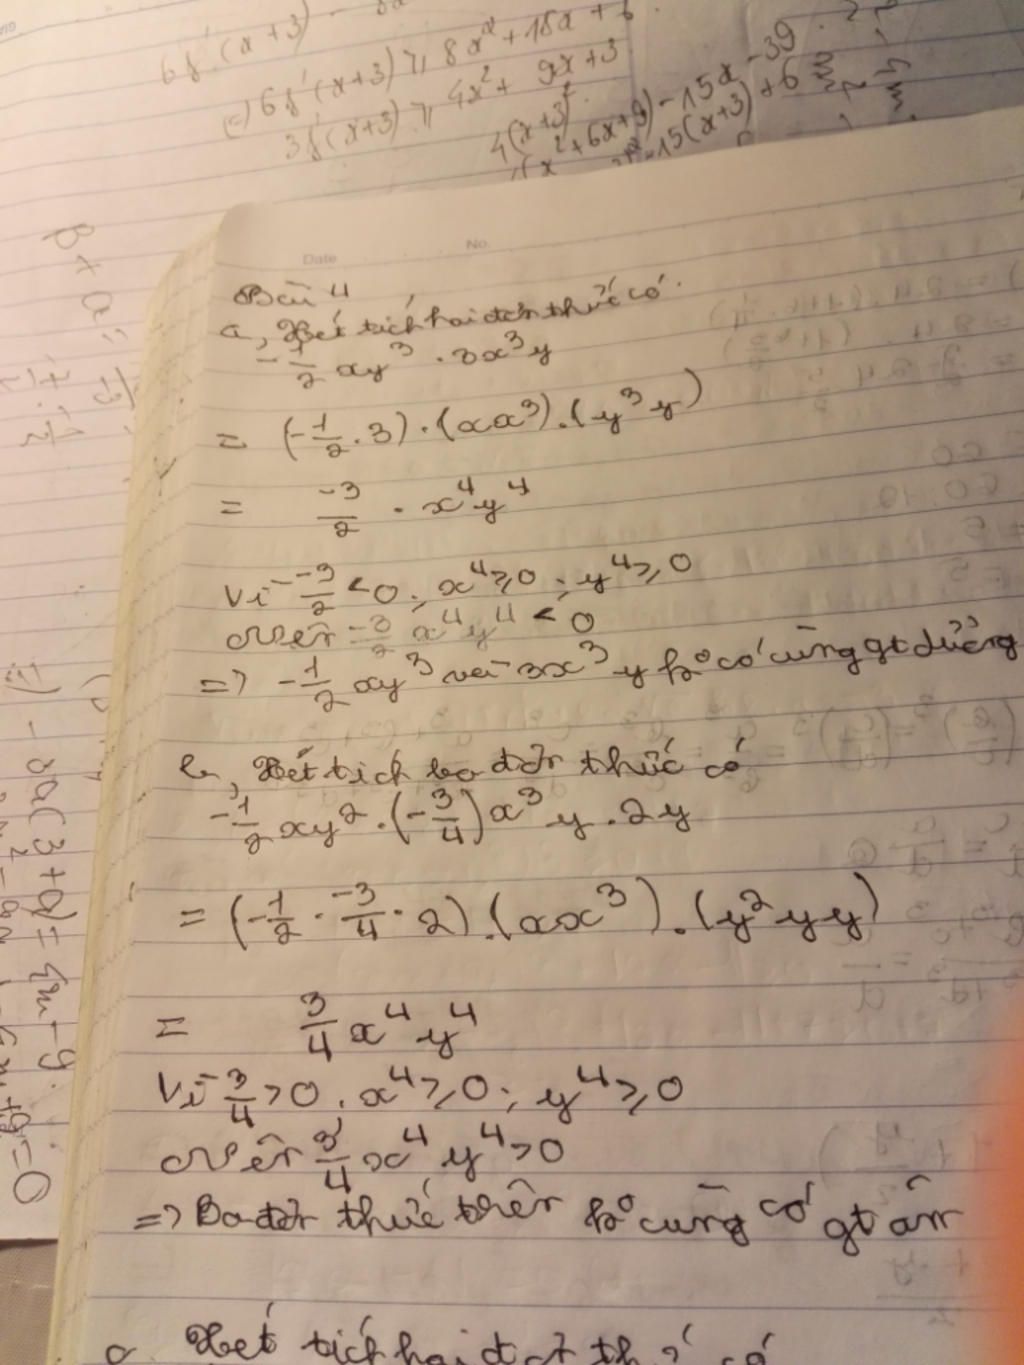 6f(x+3)
(=) 6f(x+3) ≥ 8x² + 18x + 6
3f(x+3) ≥ 4x² + 9x + 3
4(x+3)²
(x² + 6x + 9) - 15x - 39
- 15(x+3) + 6
Date No.
Bài 4
a, Xét tích hai đơn thức có.
-1/2 xy³ . 3x³y
= (-1/2 . 3) . (xx³) . (y³y)
= -3/2 . x⁴y⁴
Vì -3/2 < 0 ; x⁴ ≥ 0 ; y⁴ ≥ 0
Nên -3/2 x⁴y⁴ < 0
=> -1/2 xy³ và 3x³y k° có cùng gt dương
b, Xét tích ba đơn thức có
-1/2 xy² . (-3/4) x³y . 2y
= (-1/2 . -3/4 . 2) . (xx³) . (y²yy)
= 3/4 x⁴y⁴
Vì 3/4 > 0 ; x⁴ ≥ 0 ; y⁴ ≥ 0
Nên 3/4 x⁴y⁴ > 0
=> Ba đơn thức trên k° cùng có gt âm
c, Xét tích hai đơn thức có